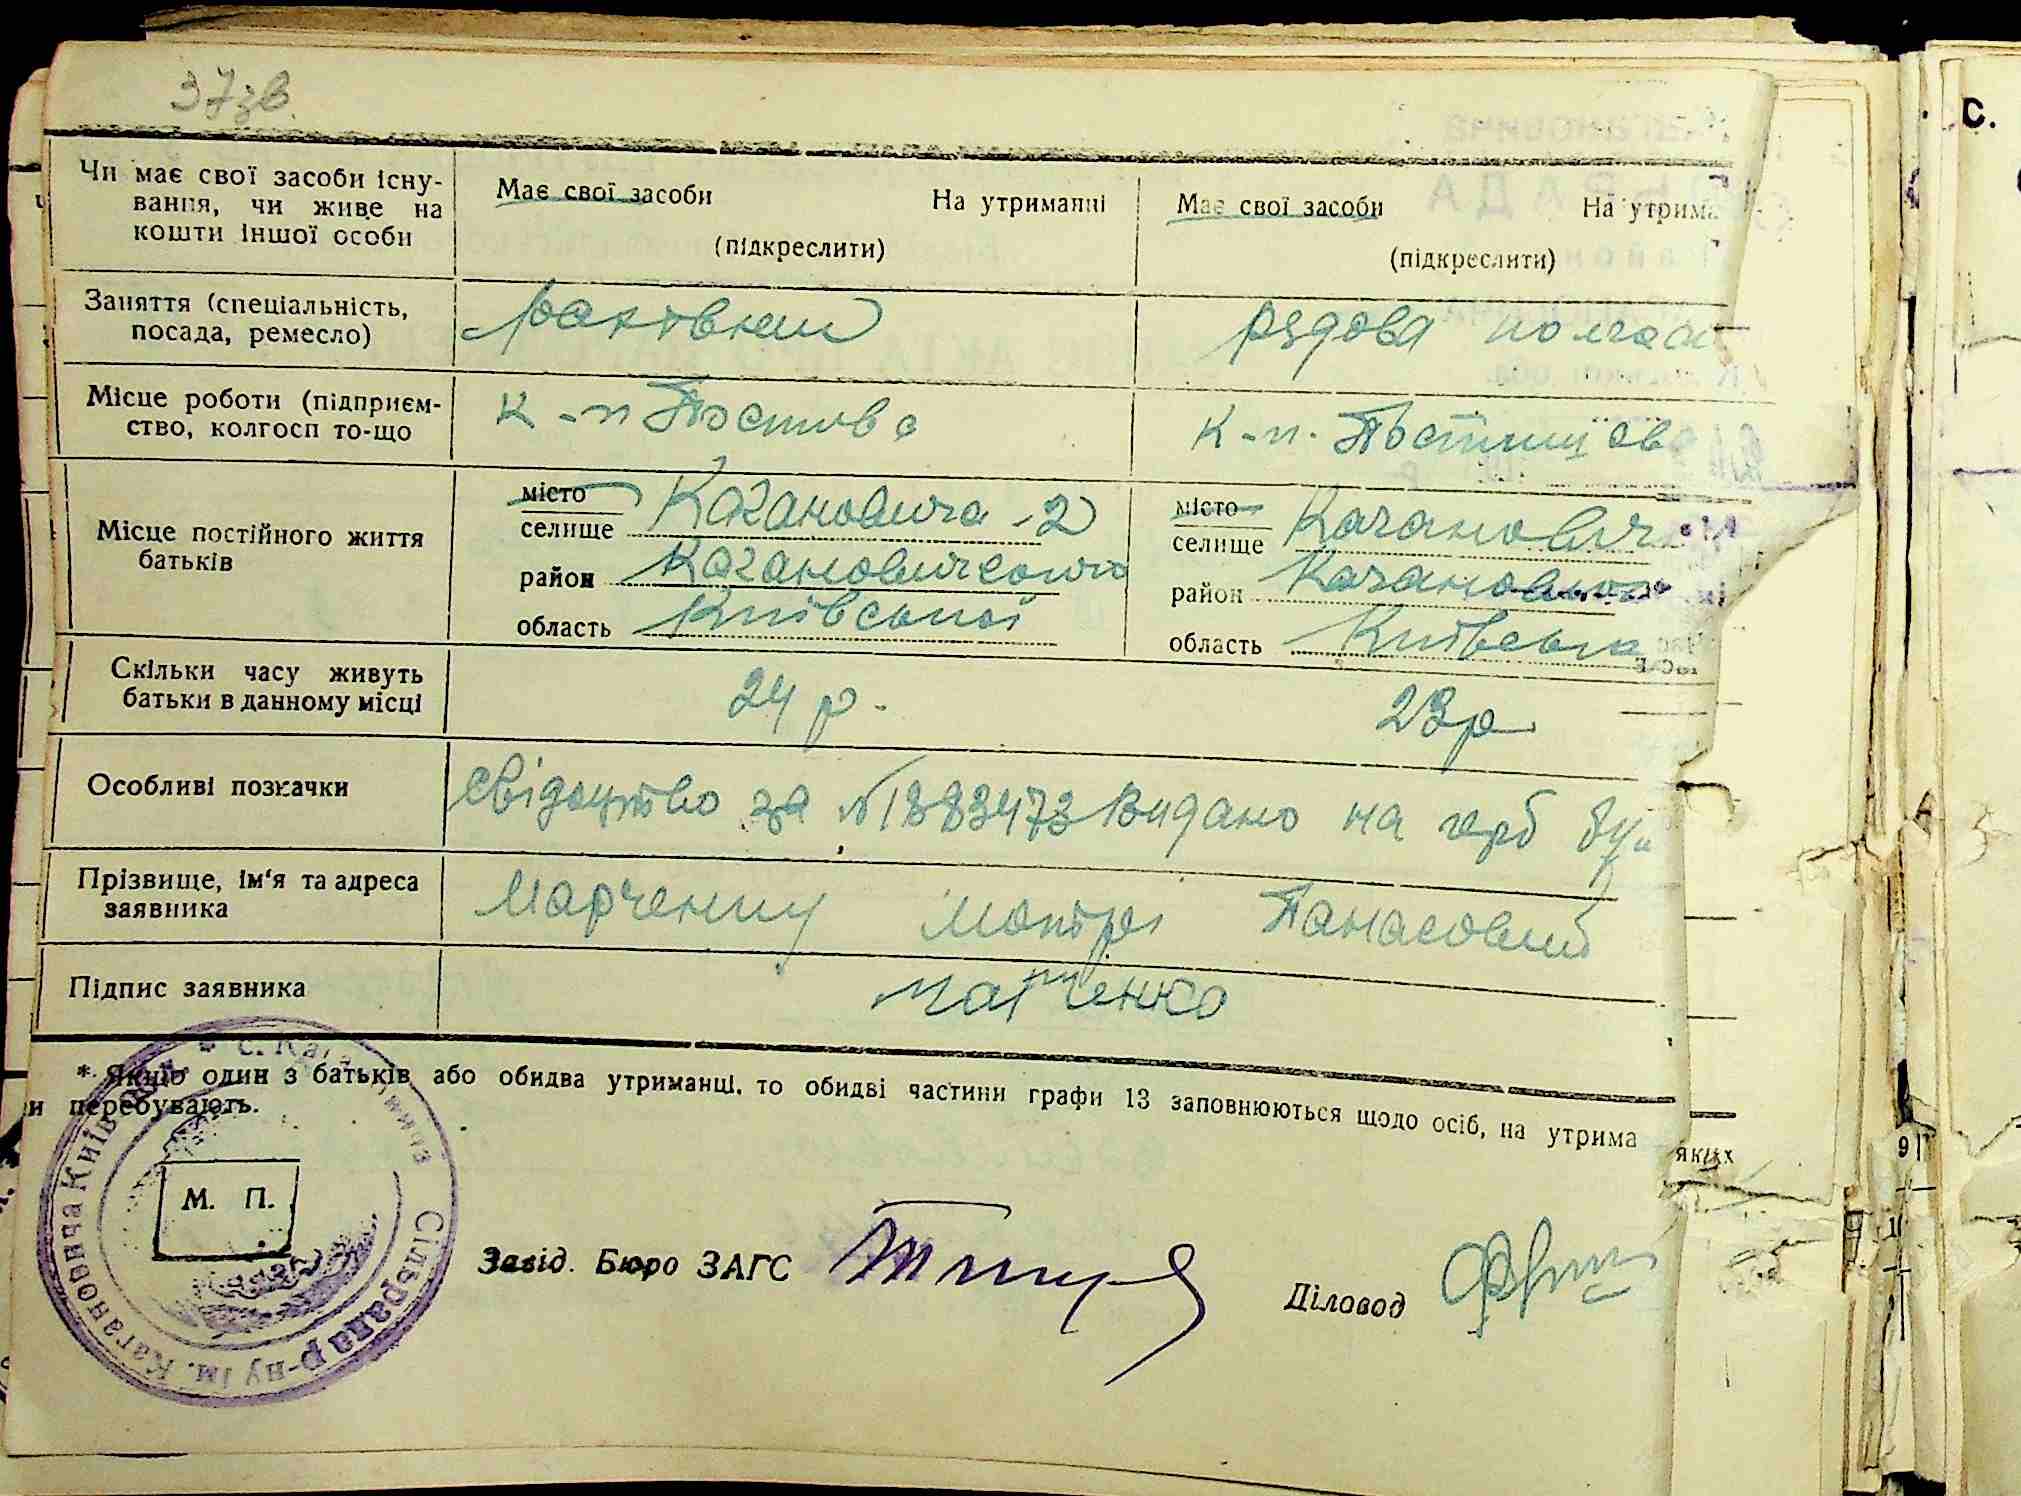 37зв.
Чи має свої засоби існу-
вання, чи живе на
кошти іншої особи
Має свої засоби На утриманні
(підкреслити)
Має свої засоби На утрима
(підкреслити)
Заняття (спеціальність,
посада, ремесло)
рядова
Місце роботи (підприєм-
ство, колгосп то-що
к-п
к-п. Постишева
Місце постійного життя
батьків
місто
селище Кагановича -2
район
область Київської
місто
селище Кагановича
район
область Київська
Скільки часу живуть
батьки в данному місці
24 р.
23 р
Особливі позначки
свідоцтво за №1883473 Видано на герб
Прізвище, ім'я та адреса
заявника
Марченку Мотрі Панасовни
Підпис заявника
Марченко
* Якщо один з батьків або обидва утриманці, то обидві частини графи 13 заповнюються щодо осіб, на утрима
яких
и перебувають.
М. П.
Сільрада р-ну ім. Кагановича Київ
Завід. Бюро ЗАГС
Діловод
С.
9